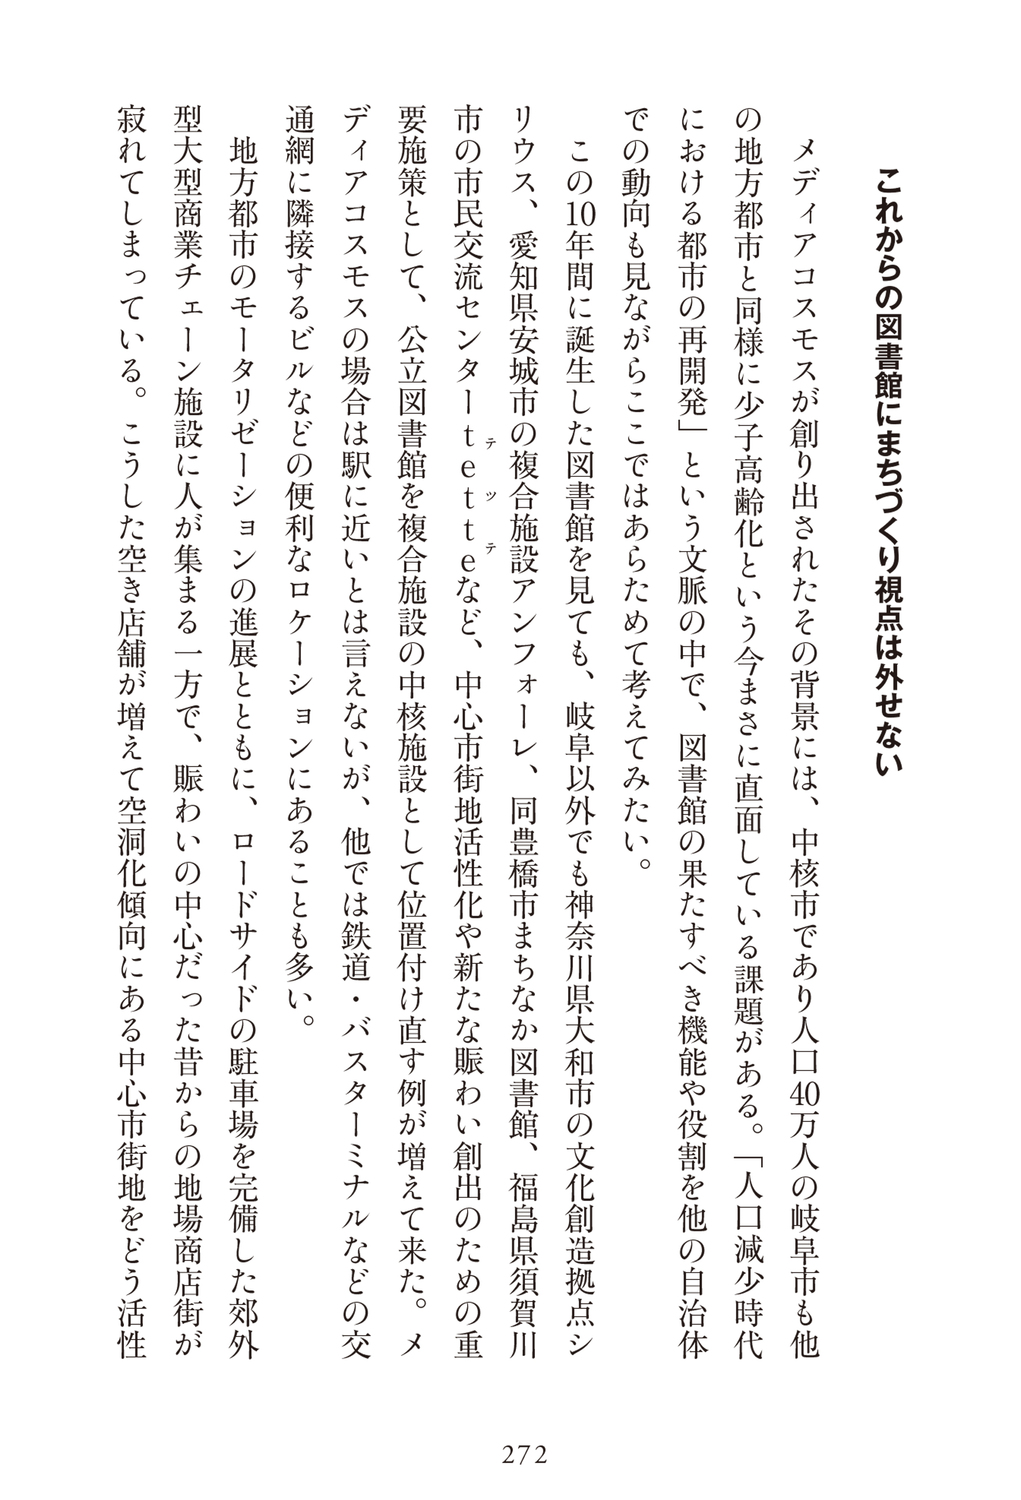 これからの図書館にまちづくり視点は外せない
　メディアコスモスが創り出されたその背景には、中核市であり人口40万人の岐阜市も他
の地方都市と同様に少子高齢化という今まさに直面している課題がある。「人口減少時代
における都市の再開発」という文脈の中で、図書館の果たすべき機能や役割を他の自治体
での動向も見ながらここではあらためて考えてみたい。
　この10年間に誕生した図書館を見ても、岐阜以外でも神奈川県大和市の文化創造拠点シ
リウス、愛知県安城市の複合施設アンフォーレ、同豊橋市まちなか図書館、福島県須賀川
市の市民交流センターtetteテッテなど、中心市街地活性化や新たな賑わい創出のための重
要施策として、公立図書館を複合施設の中核施設として位置付け直す例が増えて来た。メ
ディアコスモスの場合は駅に近いとは言えないが、他では鉄道・バスターミナルなどの交
通網に隣接するビルなどの便利なロケーションにあることも多い。
　地方都市のモータリゼーションの進展とともに、ロードサイドの駐車場を完備した郊外
型大型商業チェーン施設に人が集まる一方で、賑わいの中心だった昔からの地場商店街が
寂れてしまっている。こうした空き店舗が増えて空洞化傾向にある中心市街地をどう活性
272